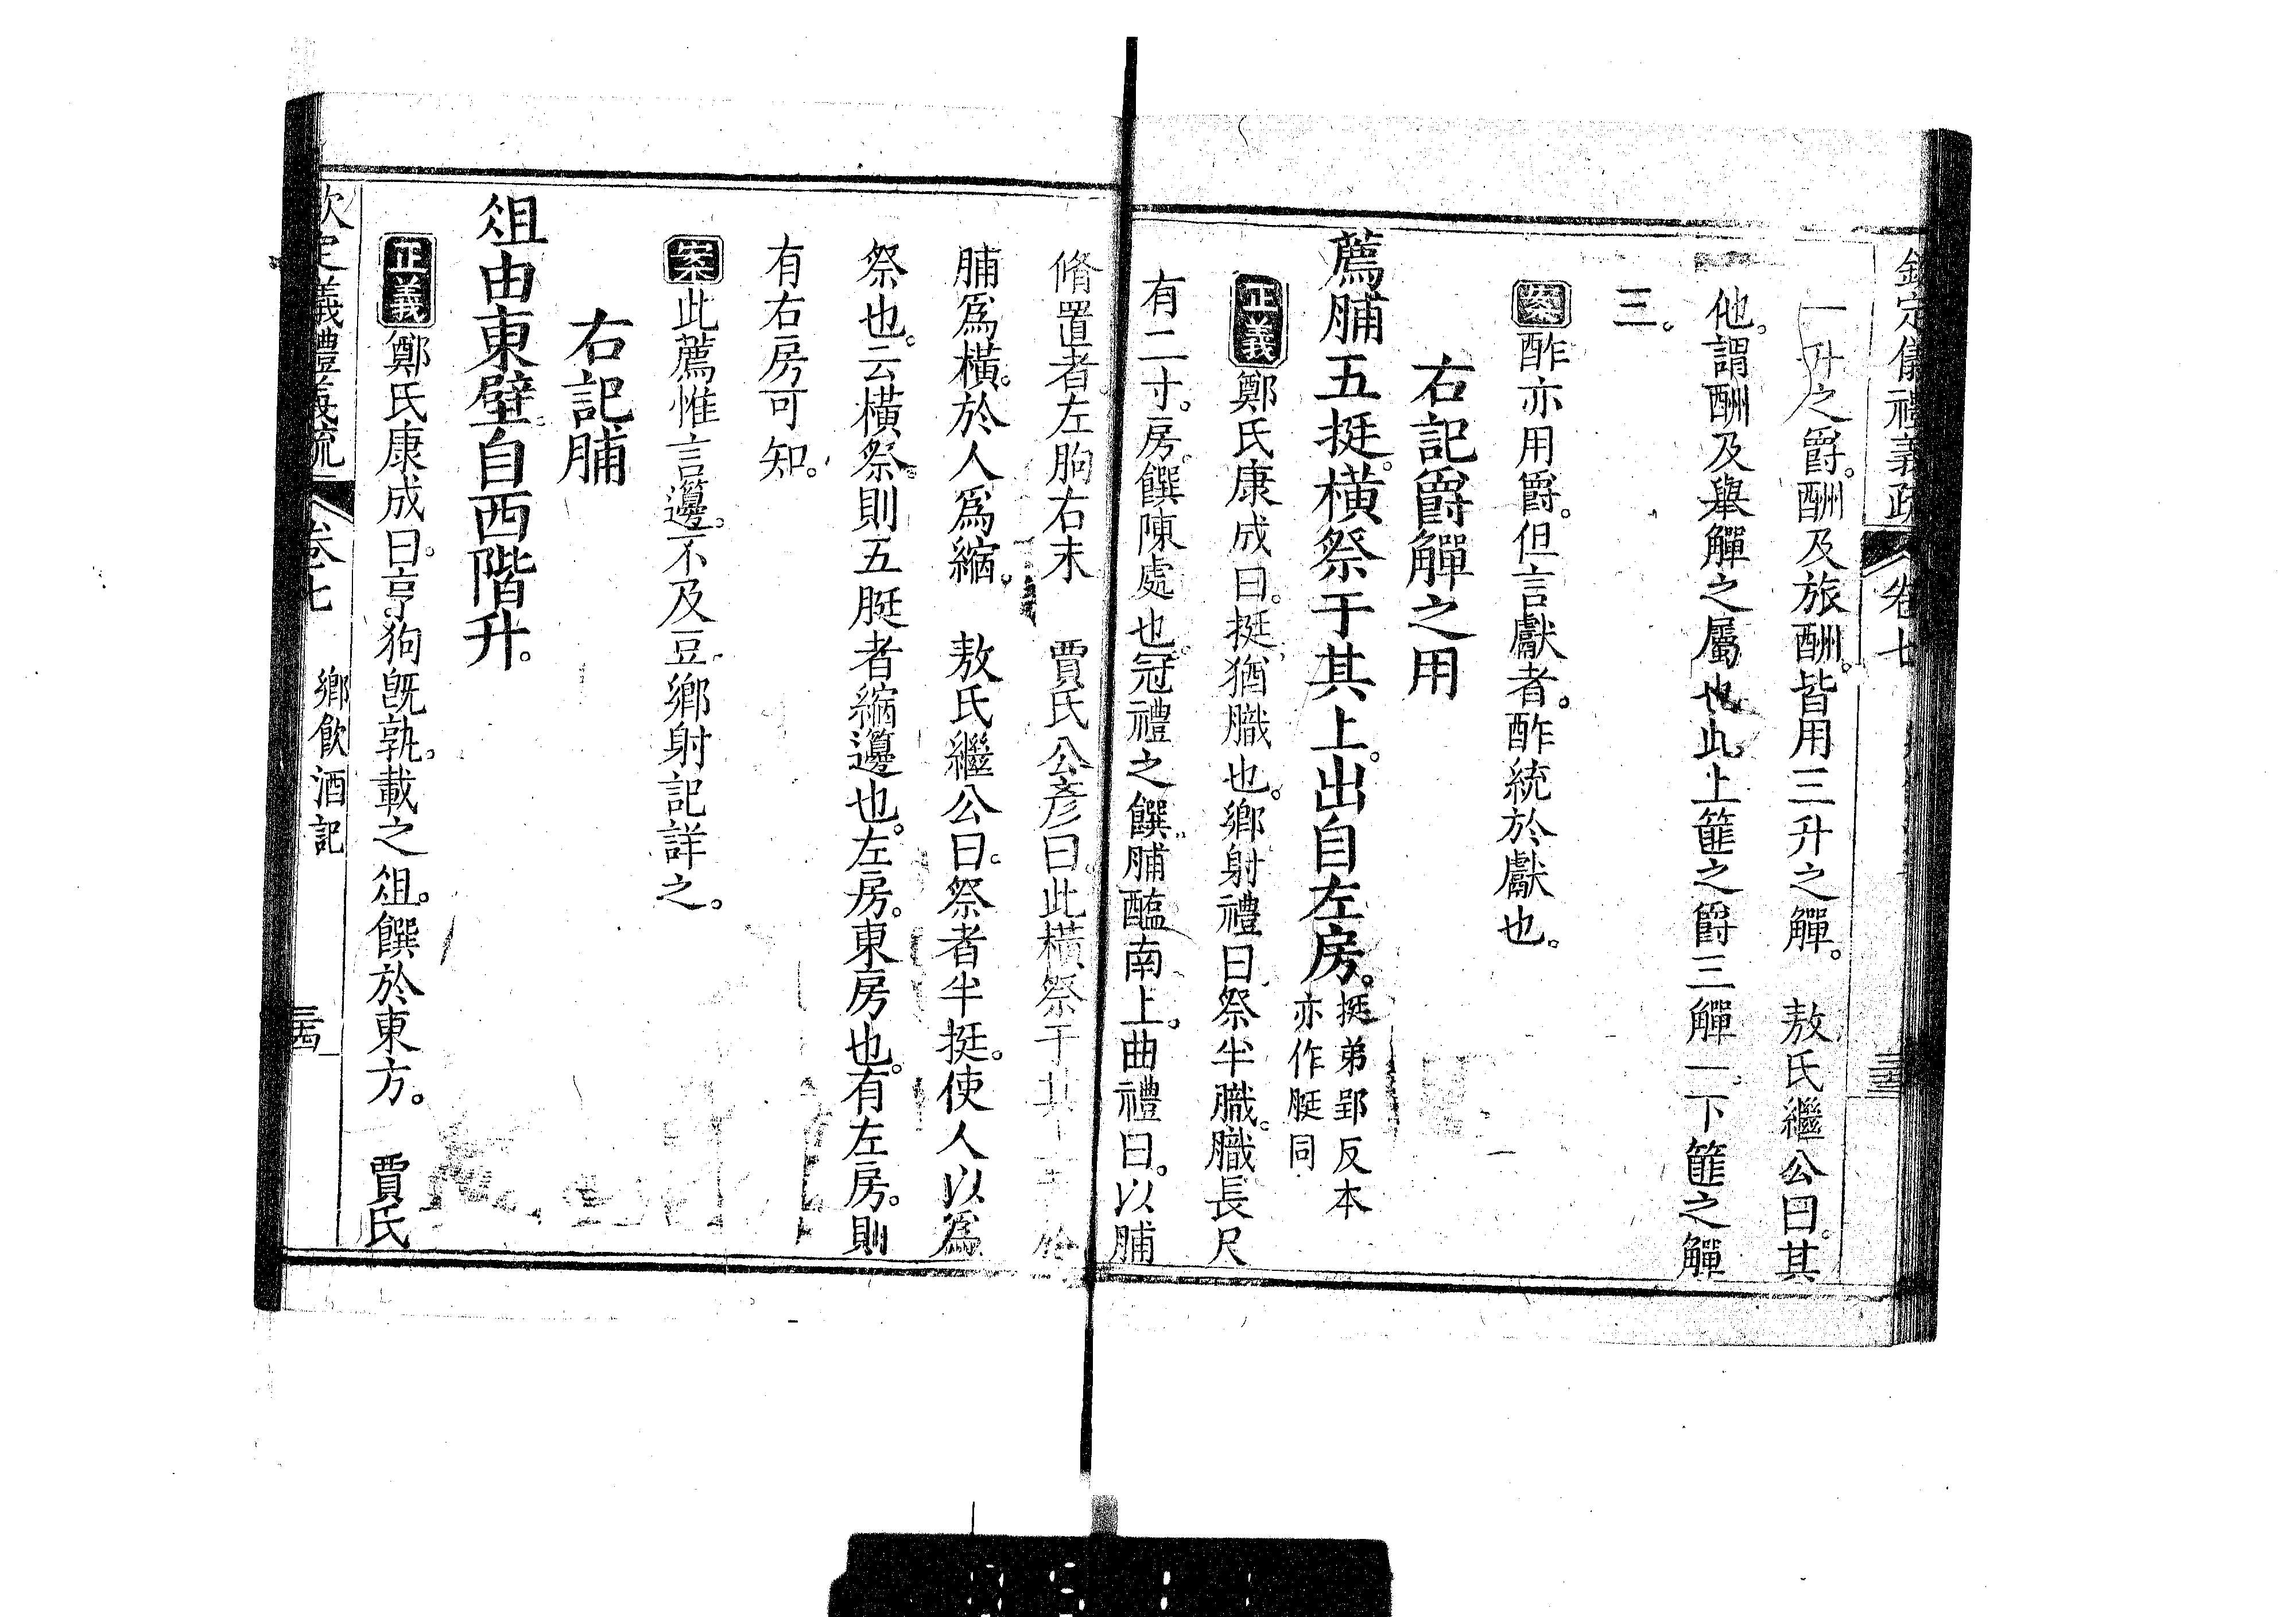 欽定儀禮義疏 卷七
一升之爵。酬及旅酬。皆用三升之觶。 敖氏繼公曰。其
他。謂酬及舉觶之屬也。此上篚之爵三觶一。下篚之觶
三。
案酢亦用爵。但言獻者。酢統於獻也。
右記爵觶之用
薦脯五挺。橫祭于其上。出自左房。挺弟郢反本亦作脡同
正義鄭氏康成曰。挺猶膱也。鄉射禮曰。祭半膱。膱長尺
有二寸。房。饌陳處也。冠禮之饌。脯醢南上。曲禮曰。以脯
脩置者。左朐右末 賈氏公彥曰。此橫祭于其
脯爲橫。於人爲縮。 敖氏繼公曰。祭者半挺。使人以爲
祭也。云橫祭。則五脡者縮籩也。左房。東房也。有左房。則
有右房可知。
案此薦惟言籩。不及豆。鄉射記詳之。
右記脯
俎由東壁。自西階升。
正義鄭氏康成曰。亨狗旣孰。載之俎。饌於東方。 賈氏
欽定義禮義疏 卷七 鄉飲酒記